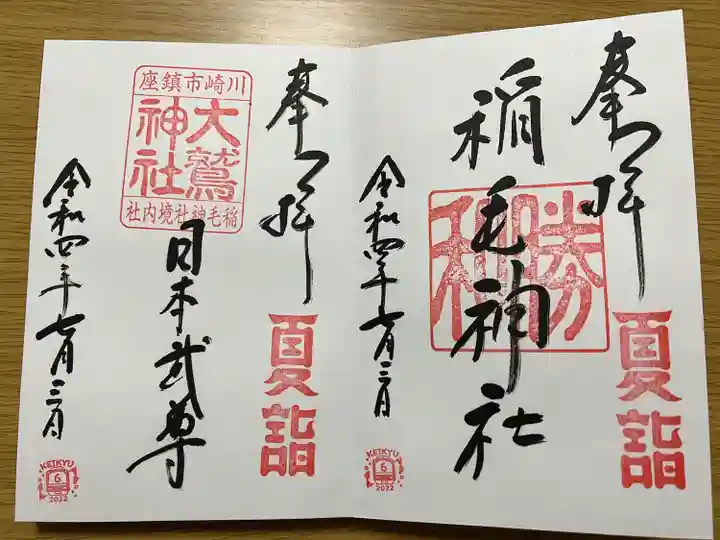 奉拝
夏詣
稲毛神社
勝
令和四年七月三日
KEIKYU
6
2022
奉拝
夏詣
川崎市鎮座
大鷲
神社
稲毛神社境内社
日本武尊
令和四年七月三日
KEIKYU
6
2022